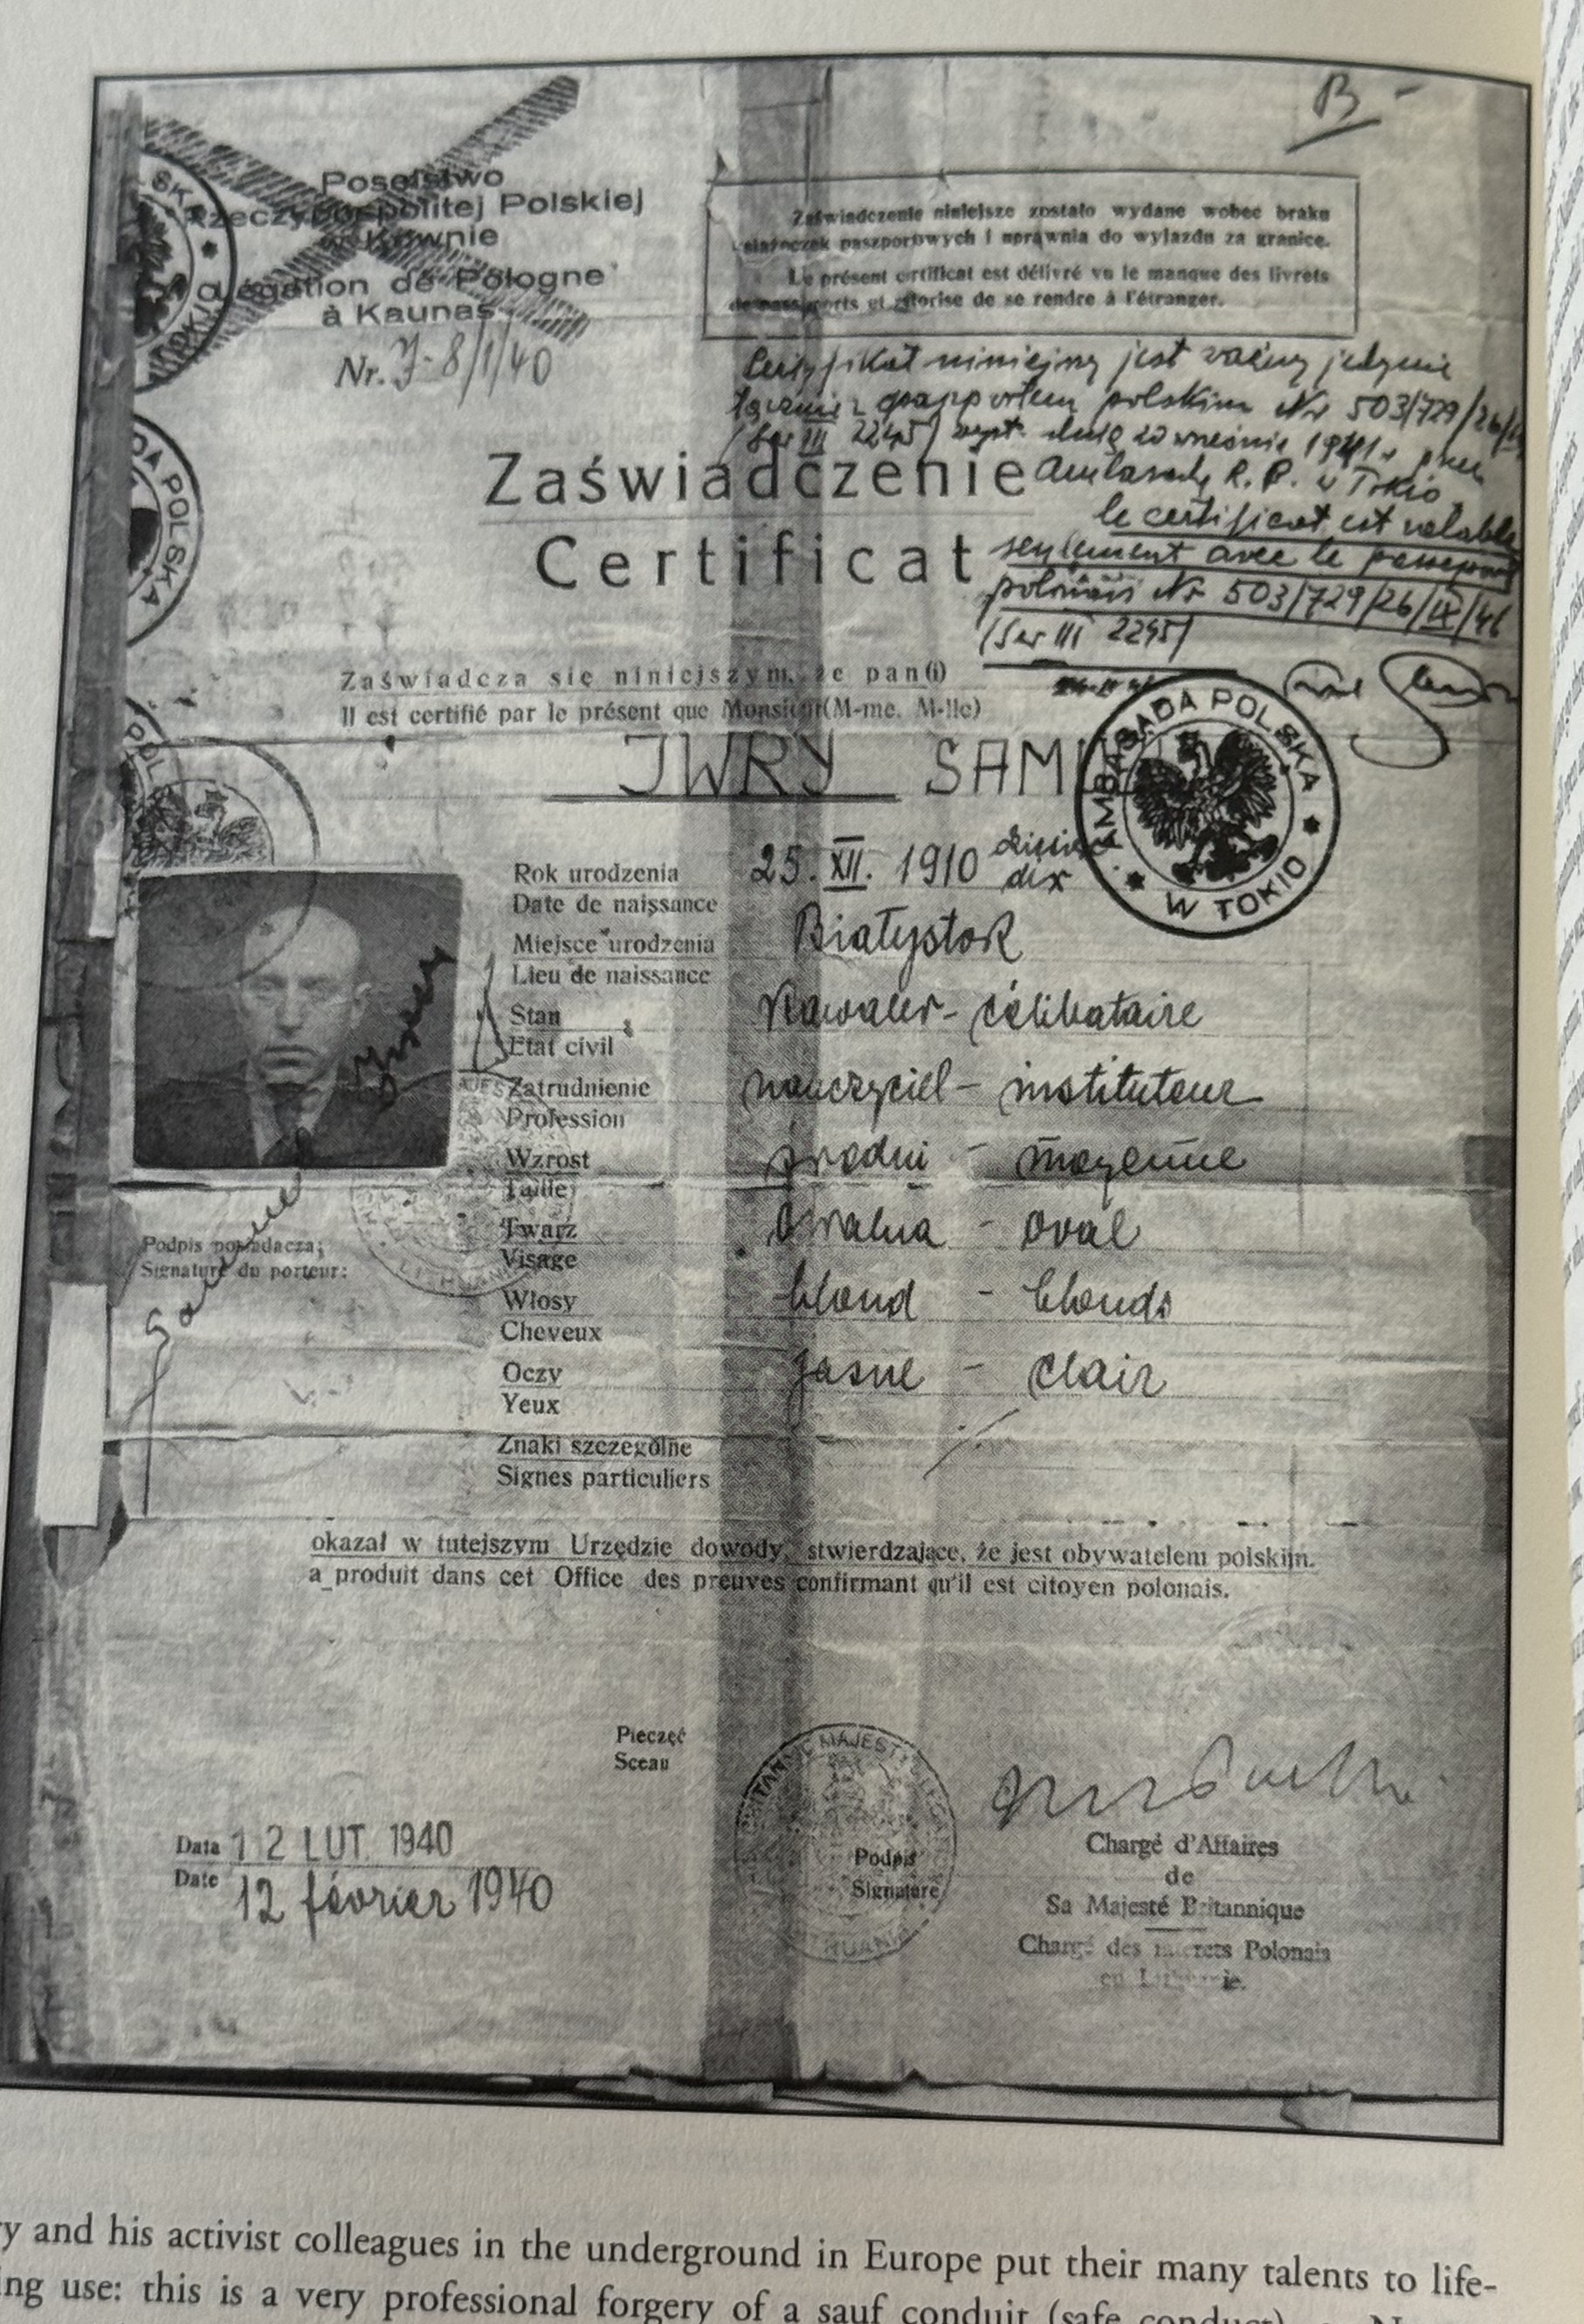 B-
Poselstwo
Rzeczypospolitej Polskiej
w Kownie
Légation de Pologne
à Kaunas
Nr. J-8/1/40
Zaświadczenie niniejsze zostało wydane wobec braku
książeczek paszportowych i uprawnia do wyjazdu za granicę.
Le présent certificat est délivré vu le manque des livrets
de passeports et autorise de se rendre à l'étranger.
Certyfikat niniejszy jest ważny jedynie
łącznie z paszportem polskim Nr 503/729/26/
(Ser III 2245) wyst. dnia 20 września 1941 r. przez
Ambasadę R. P. w Tokio
le certificat est valable
seulement avec le passeport
polonais Nr 503/729/26/IX/41
(Ser III 2245)
Zaświadczenie
Certificat
Zaświadcza się niniejszym, że pan(i)
Il est certifié par le présent que Monsieur(M-me. M-lle)
JWRY SAM
AMBASADA POLSKA
W TOKIO
Rok urodzenia 25. XII. 1910
Date de naissance dix
Miejsce urodzenia Białystok
Lieu de naissance
Stan Kawaler - célibataire
Etat civil
Zatrudnienie nauczyciel - instituteur
Profession
Wzrost średni - moyenne
Taille
Twarz owalna - oval
Visage
Podpis posiadacza:
Signature du porteur:
Włosy blond - blonds
Cheveux
Oczy jasne - clair
Yeux
Znaki szczególne
Signes particuliers
okazał w tutejszym Urzędzie dowody, stwierdzające, że jest obywatelem polskim.
a produit dans cet Office des preuves confirmant qu'il est citoyen polonais.
Pieczęć
Sceau
Data 12 LUT. 1940
Date 12 février 1940
Podpis
Signature
Chargé d'Affaires
de
Sa Majesté Britannique
Chargé des interets Polonais
en Lithuanie.
y and his activist colleagues in the underground in Europe put their many talents to life-
ing use: this is a very professional forgery of a sauf conduit (safe conduct)